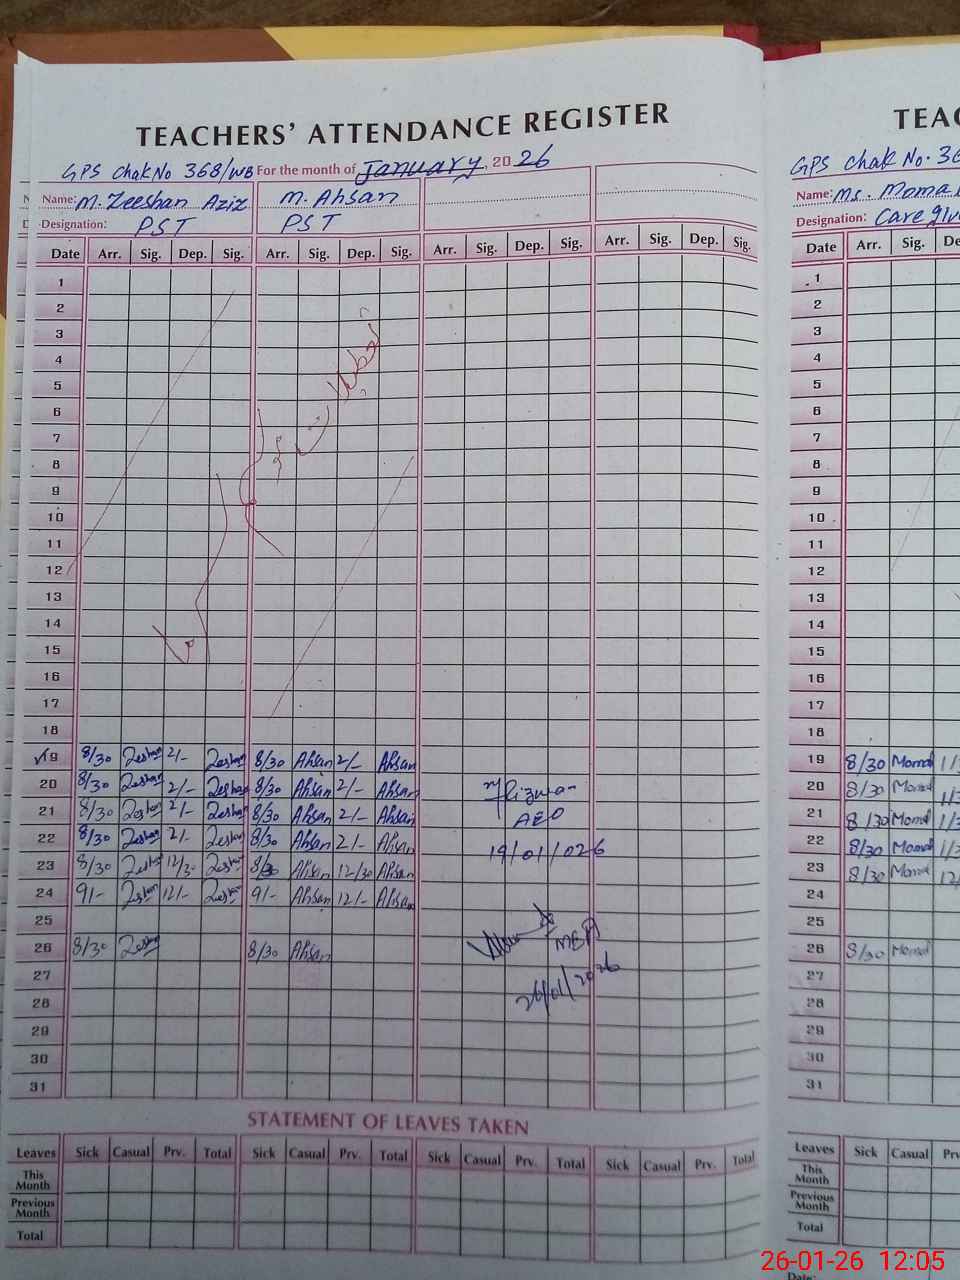 TEACHERS' ATTENDANCE REGISTER
GPS Chak No 368/WB For the month of January. 2026
Name: M. Zeeshan Aziz M. Ahsan
Designation: PST PST
Date Arr. Sig. Dep. Sig. Arr. Sig. Dep. Sig. Arr. Sig. Dep. Sig. Arr. Sig. Dep. Sig.
1
2
3
4
5
6
7
8
9
10
11
12
13
14
15
16
17
18
19 8/30 Zeshan 2/- Zeshan 8/30 Ahsan 2/- Ahsan
20 8/30 Zeshan 2/- Zeshan 8/30 Ahsan 2/- Ahsan
21 8/30 Zeshan 2/- Zeshan 8/30 Ahsan 2/- Ahsan
22 8/30 Zeshan 2/- Zeshan 8/30 Ahsan 2/- Ahsan
23 8/30 Zeshan 12/30 Zeshan 8/30 Ahsan 12/30 Ahsan
24 9/- Zeshan 12/- Zeshan 9/- Ahsan 12/- Ahsan
25
26 8/30 Zeshan 8/30 Ahsan
27
28
29
30
31
Rizwan
AEO
19/01/026
MEA
26/01/2026
STATEMENT OF LEAVES TAKEN
Leaves Sick Casual Prv. Total Sick Casual Prv. Total Sick Casual Prv. Total Sick Casual Prv. Total
This Month
Previous Month
Total
TEAC
GPS Chak No. 36
Name: Ms. Moma
Designation: Care giv
Date Arr. Sig. De
1
2
3
4
5
6
7
8
9
10
11
12
13
14
15
16
17
18
19 8/30 Momal 1/3
20 8/30 Momal 1/3
21 8/30 Momal 1/3
22 8/30 Momal 1/3
23 8/30 Momal 12/
24
25
26 8/30 Momal
27
28
29
30
31
Leaves Sick Casual Prv
This Month
Previous Month
Total
Date:
26-01-26 12:05